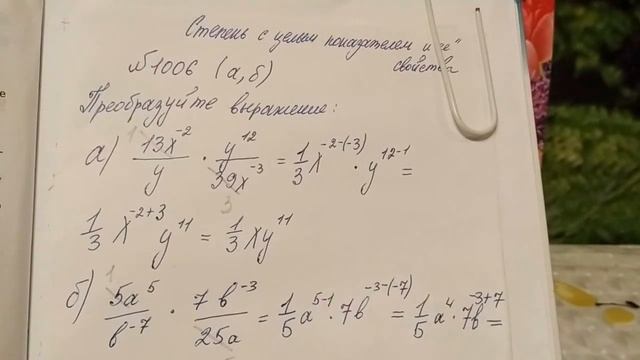 Степень с целым показателем и её"
свойства
№1006 (а,б)
Преобразуйте выражение:
а) 13x⁻²/y · y¹²/39x⁻³ = 1/3 x⁻²⁻⁽⁻³⁾ · y¹²⁻¹ =
1/3 x⁻²⁺³ y¹¹ = 1/3 xy¹¹
б) 5a⁵/b⁻⁷ · 7b⁻³/25a = 1/5 a⁵⁻¹ · 7b⁻³⁻⁽⁻⁷⁾ = 1/5 a⁴ · 7b⁻³⁺⁷ =